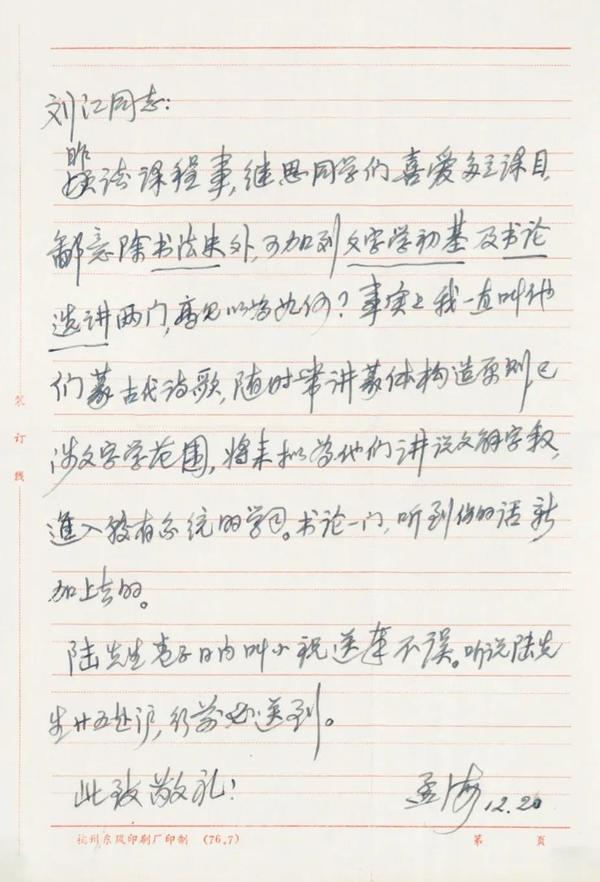 刘江同志：
昨谈课程事，继思同学们喜爱多立课目，
鄙意除书法史外，可加列文字学初基及书论
选讲两门，高见以为如何？事实上我一直叫他
们篆古代诗歌，随时常讲篆体构造原则，已
涉文字学范围，将来拟为他们讲说文解字叙，
进入较有系统的学习。书论一门，听到你的话新
加上去的。
陆先生卷子日内叫小祝送奉不误。听说陆先
生廿五赴沪，行前必送到。
此致敬礼！
孟海 12.20
装订线
杭州东风印刷厂印制 (76.7)
第 页